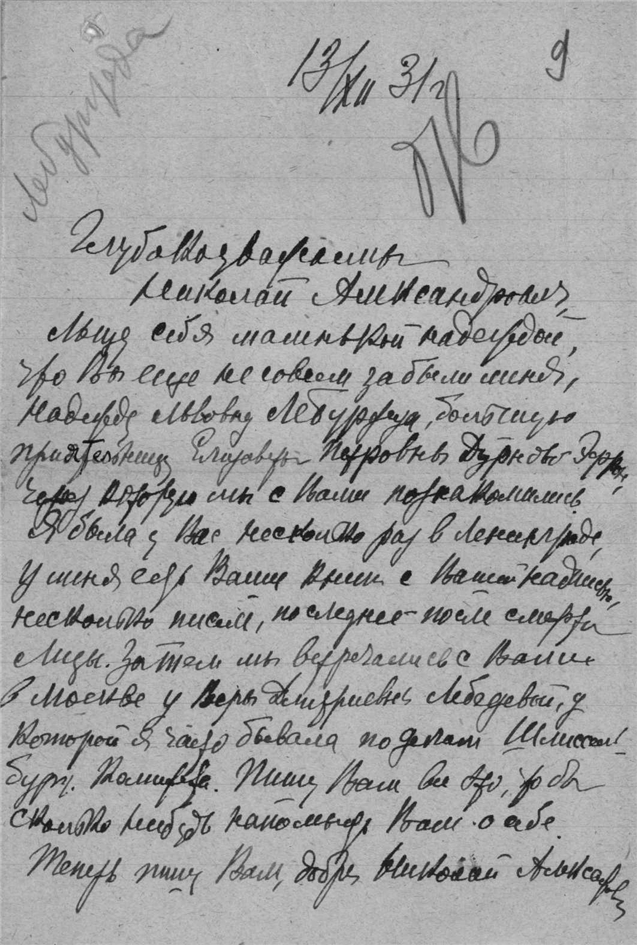 9
13/XII 31 г.
Лебуржеда
Глубокоуважаемы
Николай Александрович,
Льщу себя маленькой надеждой,
что Вы еще не совсем забыли меня,
Надежду Львовну Лебуржеда, большую
приятельницу Елизаветы Петровны Дурново-Эфрон,
через которую мы с Вами познакомились.
Я была у Вас несколько раз в Ленинграде,
у меня есть Ваши книги с Вашей надписью,
несколько писем, последнее после смерти
Лизы. Затем мы встречались с Вами
в Москве у Веры Дмитриевны Лебедевой, у
которой я часто бывала по делам Шлиссель-
бург. Комитета. Пишу Вам все это, чтобы
сколько нибудь напомнить Вам о себе.
Теперь пишу Вам, добрый Николай Александр